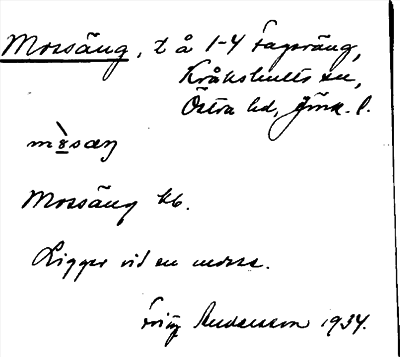 Mossäng, t å 1-4 Fagräng,
Kråkshults sn,
Östra hd, Jönk. l.
mòsæŋ
Mossäng kb.
Ligger vid en mosse.
Andersson 1934.